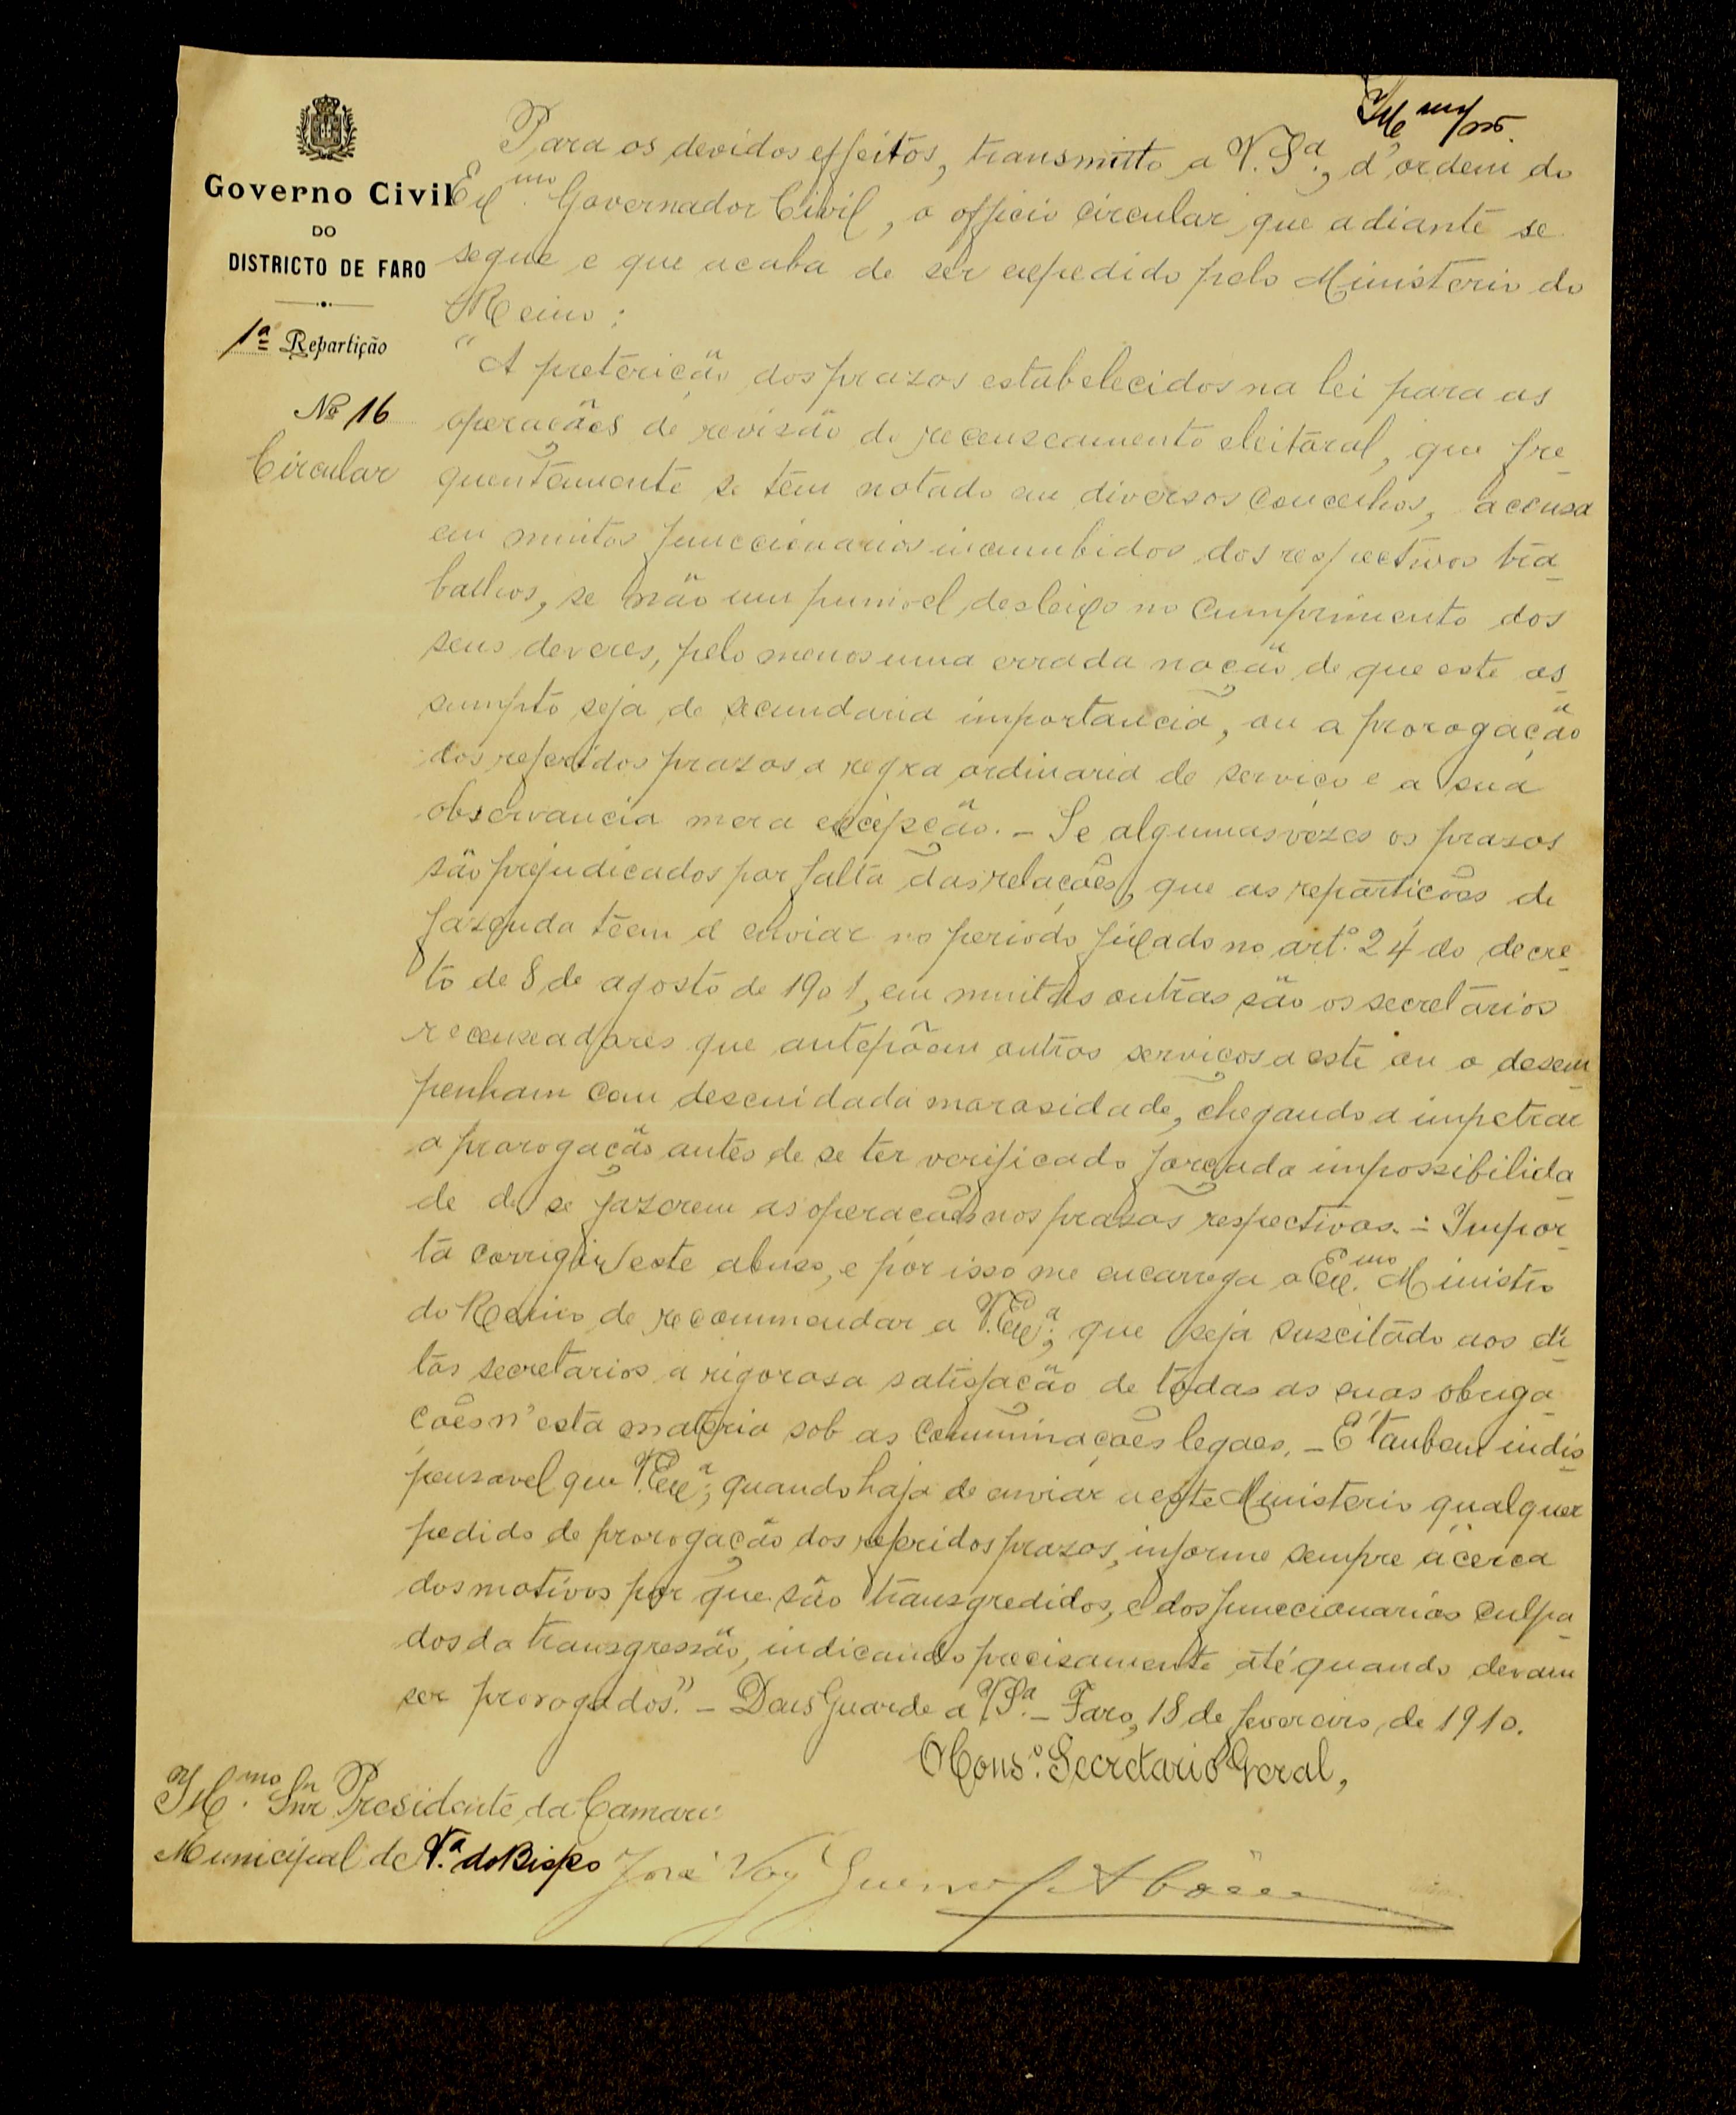 Governo Civil
DO
DISTRICTO DE FARO
1ª Repartição
Nº 16
Circular
Para os devidos effeitos, transmitto a V. Sª, d'ordem do
Exmo. Governador Civil, o officio circular que adiante se
segue e que acaba de ser expedido pelo Ministerio do
Reino:
"A preterição dos prazos estabelecidos na lei para as
operações de revisão do recenseamento eleitoral, que fre-
quentemente se tem notado em diversos concelhos, accusa
em muitos funccionarios incumbidos dos respectivos tra-
balhos, se não um punivel desleixo no cumprimento dos
seus deveres, pelo menos uma errada noção de que este as-
sumpto seja de secundaria importancia, ou a prorogação
dos referidos prazos a regra ordinaria de serviço e a sua
observancia mera excepção. - Se algumas vezes os prazos
são prejudicados por falta das relações, que as repartições de
fazenda téem a enviar no periodo fixado no artº. 24 do decre-
to de 8 de agosto de 1901, em muitas outras são os secretarios
recenseadores que antepõem outros serviços a este ou o desem-
penham com descuidada morosidade, chegando a impetrar
a prorogação antes de se ter verificado forçada impossibilida-
de de se fazerem as operações nos prazos respectivos. - Impor-
ta corrigir este abuso, e por isso me encarrega o Exmo. Ministro
do Reino de recommendar a V. Exª, que seja suscitado aos di-
tos secretarios a rigorosa satisfação de todas as suas obriga-
ções n'esta materia sob as comminações legaes. - É tambem indis-
pensavel que V. Exª, quando haja de enviar a este Ministerio qualquer
pedido de prorogação dos referidos prazos, informe sempre ácerca
dos motivos por que são transgredidos, e dos funccionarios culpa-
dos da transgressão, indicando precisamente até quando devam
ser prorogados". - Deus Guarde a V. Sª. - Faro, 18 de fevereiro de 1910.
O Consº. Secretario Geral,
Illmo. Snr Presidente da Camara
Municipal de Vª. do Bispo
José Vaz Guerreiro